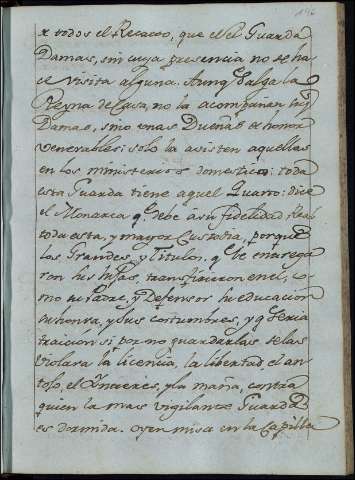 146
r todos el Recato, que el Guarda
Damas, sin cuya presencia no se ha
ce visita alguna. Aunq salga la
Reyna de Casa, no la acompañan sus
Damas, sino unas Dueñas de honor
venerables: solo la asisten aquellas
en los ministerios domesticos: toda
esta Guarda tiene aquel Quarto: dice
el Monarca q debe a su fidelidad Real
toda esta, y mayor Custodia, porque
los Grandes, y Titulos, q le entrega
ron sus hijas, transfirieron en el, co
mo su Padre, y Defensor su educacion
su honra, y sus costumbres, y q seria
traicion si por no guardarlas se las
violara la licencia, la libertad, el an
tojo, el Ynteres, y la maña, contra
quien la mas vigilante Guarda
es dormida. oyen misa en la Capilla